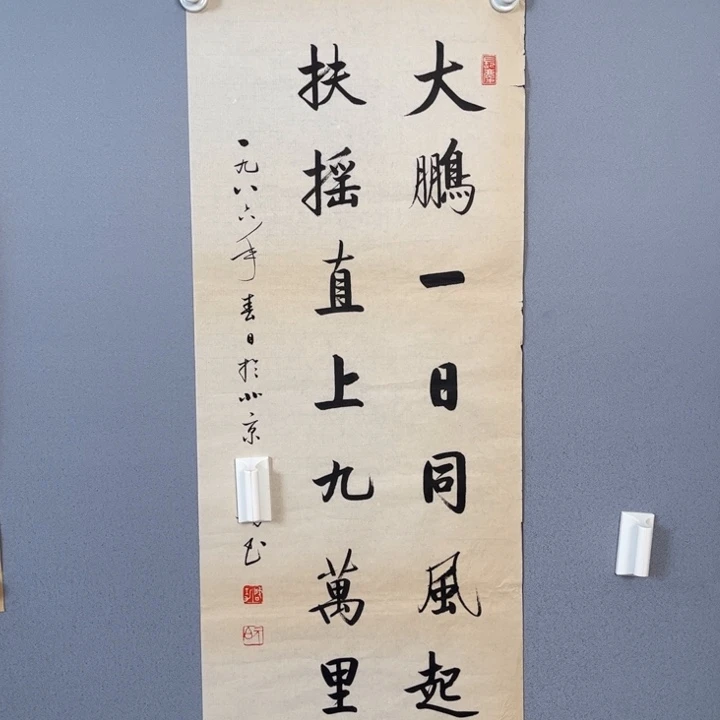 大鵬一日同風起
扶摇直上九萬里
一九八六年春日於北京
书